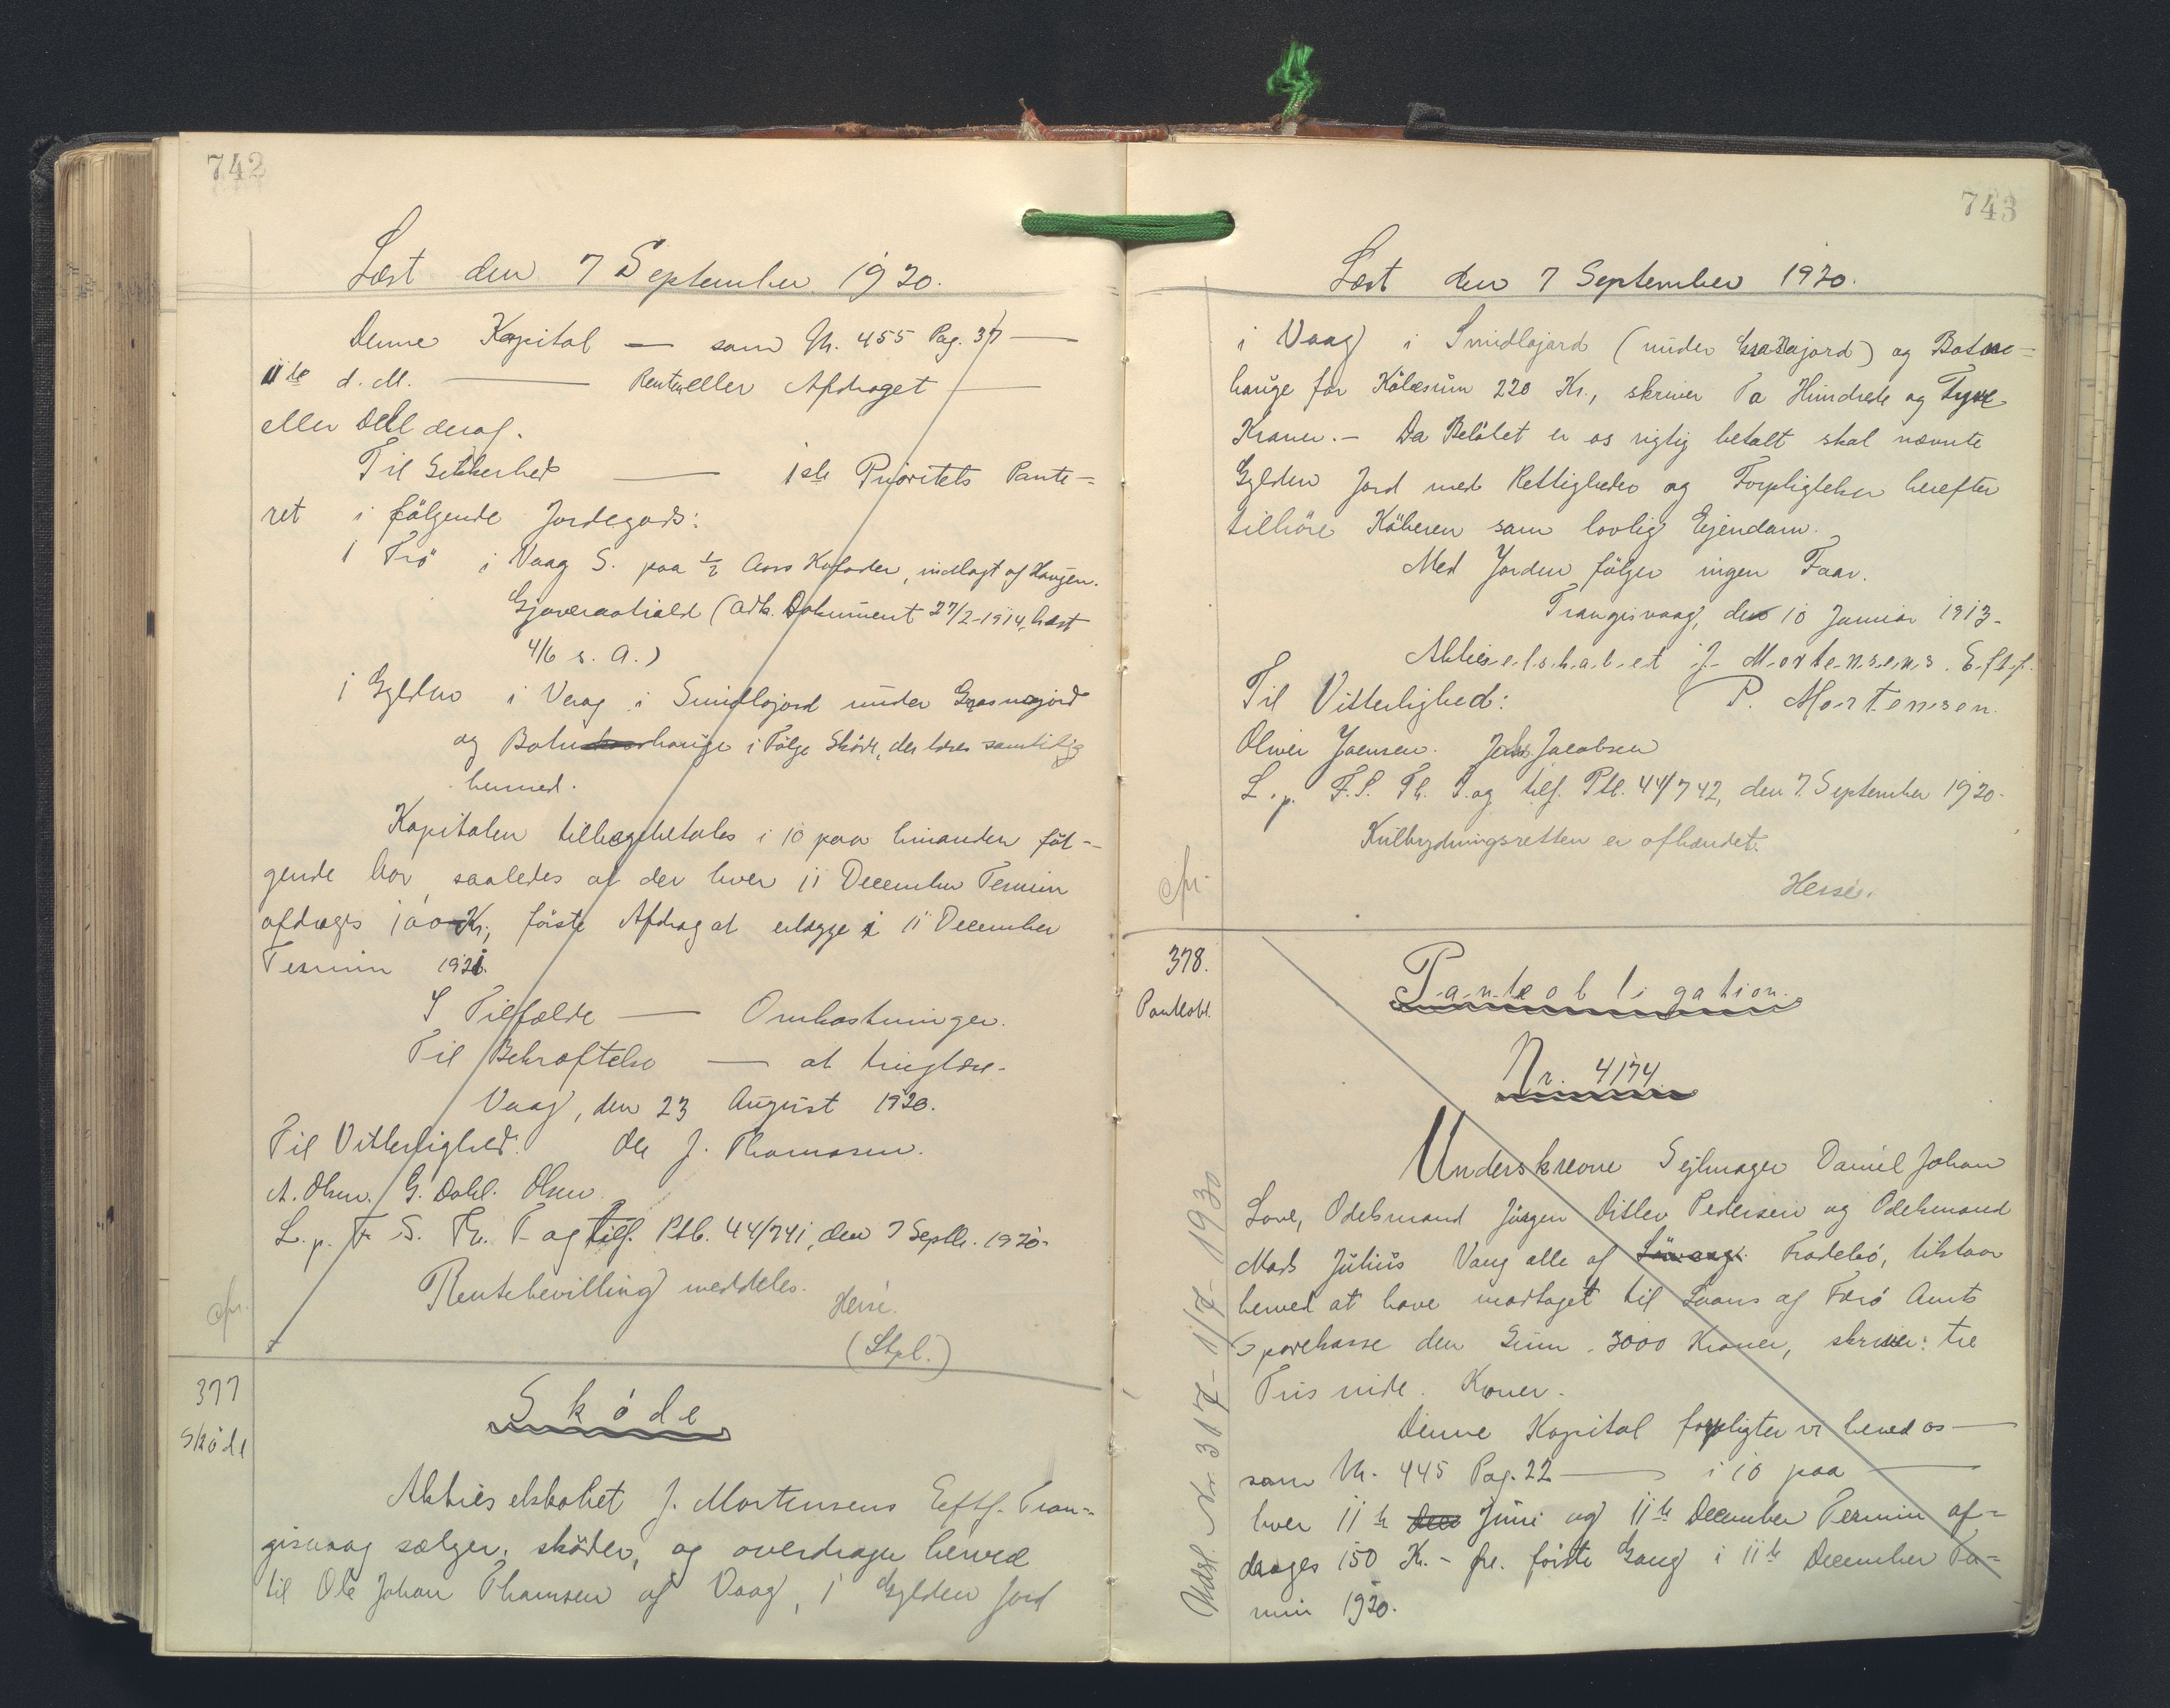 742
Læst den 7 September 1920.
Denne Kapital — som Nr. 455 Pag. 37 —
11te d. M. — Renten eller Afdraget —
eller Del deraf.
Til Sikkerhed — 1ste Prioritets Pante-
ret i følgende Jordegods:
1 Trö i Vaag S. paa ½ Aars Kofoder, indlagt af Haugen.
(adk. Dokument 27/2-1914, læst
4/6 s. A.)
1 Gylden i Vaag i Smidlojord under
og Botnehauge i Følge Sköde, der læses samtidig
hermed.
Kapitalen tilbagebetales i 10 paa hinanden föl-
gende Aar saaledes at der hver 11 December Termin
afdrages 100 Kr., förste Afdrag at erlægge i 11 December
Termin 1921.
I Tilfælde — Omkostninger.
Til Bekræftelse — at tinglæse.
Vaag, den 23 August 1920.
Til Vitterlighed: Ole J. Thomsen.
A. Olsen. G. Dahl. Olsen
L. p. F. S. Th. T. og tilf. Ptb. 44/741, den 7 Septb. 1920.
Rentebevilling meddeles.
Hersé.
(Stpl.)
cfr.
377
Sköde
Sköde
Aktieselskabet J. Mortensens Eftf. Tran-
gisvaag sælger, sköder, og overdrager herved
til Ole Johan Thomsen af Vaag, 1 Gylden Jord
743
Læst den 7 September 1920.
i Vaag i Smidlojord (under) og Botne-
hauge for Köbesum 220 Kr., skriver To Hundrede og Tyve
Kroner. — Da Belöbet er os rigtig betalt skal nævnte
Gylden Jord med Rettigheder og Forpligtelser herefter
tilhöre Köberen som lovlig Ejendom.
Med Jorden fölger ingen Faar.
Trangisvaag, den 10 Januar 1913.
Aktieselskabet J. Mortensens. Eftf.
Til Vitterlighed: P. Mortensen.
Oliver Joensen. Johs. Jacobsen
L. p. F. S. Th. T. og tilf. Ptb. 44/742, den 7. September 1920.
Kulbrydningsretten er afhændet.
Hersé.
cfr.
378.
Panteobl.
Panteobligation.
Nr. 4174.
Underskrevne Sejlmager Daniel Johan
Love, Odelsmand Jörgen Ditlev Pedersen og Odelsmand
Mads Julius Vang alle af Frodebö, tilstaar
herved at have modtaget til Laans af Færö Amts
Sparekasse den Sum 3000 Kroner, skriver: tre
Tusinde Kroner.
Denne Kapital forpligter vi herved os —
som Nr. 445 Pag. 22 — i 10 paa —
hver 11te Juni og 11te December Termin af-
drages 150 Kr. — förste Gang i 11te December Ter-
min 1920.
Udsl. Nr. 317 - 1/7 - 1930